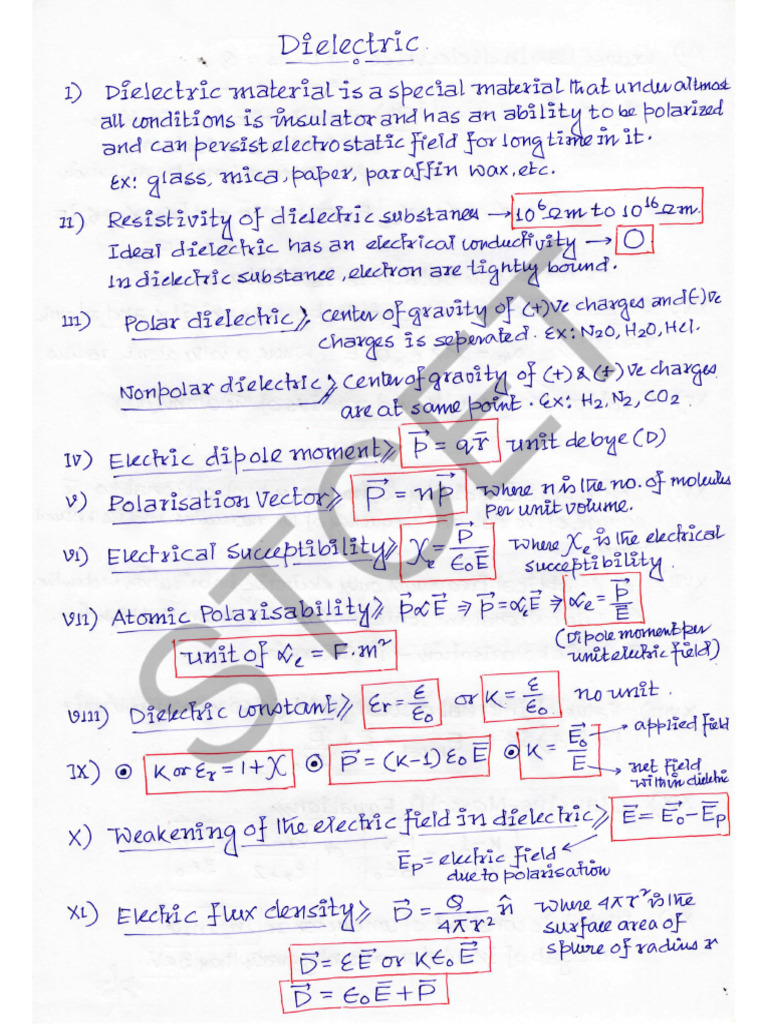 Dielectric
I) Dielectric material is a special material that under altmost
all conditions is insulator and has an ability to be polarized
and can persist electrostatic field for long time in it.
Ex: glass, mica, paper, paraffin wax, etc.
II) Resistivity of dielectric substances → 10⁶ Ωm to 10¹⁶ Ωm.
Ideal dielectric has an electrical conductivity → 0
In dielectric substance, electron are tightly bound.
III) Polar dielectric ⇒ center of gravity of (+)ve charges and (-)ve
charges is seperated. Ex: N2O, H2O, Hcl.
Nonpolar dielectric ⇒ Center of gravity of (+) & (+)ve charges
are at same point. Ex: H2, N2, CO2
IV) Electric dipole moment ⇒ p⃗ = q r̄ unit debye (D)
V) Polarisation Vector ⇒ P⃗ = n p⃗ where n is the no. of molecules
per unit volume.
VI) Electrical Succeptibility ⇒ χe = P⃗/ϵ0Ē where χe is the electrical
succeptibility.
VII) Atomic Polarisability ⇒ p⃗ ∝ E⃗ ⇒ p⃗ = αeE⃗ ⇒ αe = p⃗/Ē
(Dipole moment per
unit electric field)
unit of αe = F.m²
VIII) Dielectric constant ⇒ εr = ε/ε0 or K = ε/ε0 no unit.
IX) ⊙ K or εr = 1+χ ⊙ P⃗ = (K-1) ϵ0 Ē ⊙ K = E⃗0/Ē → applied field
→ net field
within dieletric
X) Weakening of the electric field in dielectric ⇒ Ē = E⃗0 - Ēp
Ēp = electric field
due to polarisation
XI) Electric flux density ⇒ D⃗ = Q/4πr² n̂ where 4πr² is the
surface area of
sphere of radius r
D⃗ = εE⃗ or Kϵ0E⃗
D⃗ = ϵ0Ē + P̄
STCET